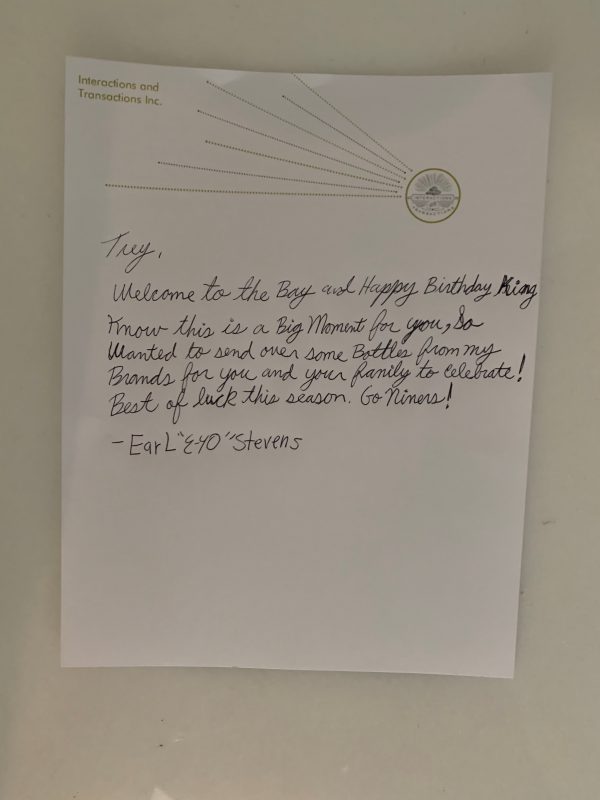 Interactions and
Transactions Inc.
INTERACTIONS
TRANSACTIONS
Trey,
Welcome to the Bay and Happy Birthday King
Know this is a Big Moment for you, So
Wanted to send over some Bottles from my
Brands for you and your family to celebrate!
Best of luck this season. Go Niners!
- Earl "E-40" Stevens